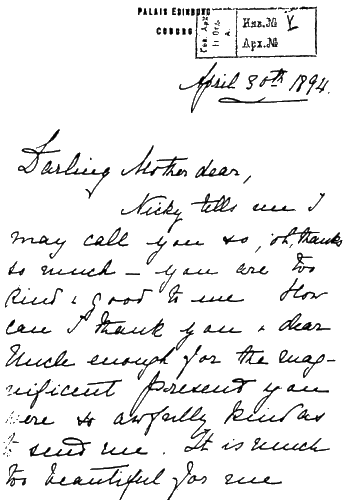 PALAIS EDINBURG
COBURG
Гос. Арх.
II Отд.
А.
Инв.№ V
Арх.№
April 30th 1894.
Darling Mother dear,
Nicky tells me I
may call you so, oh, thanks
so much – you are too
kind & good to me How
can I thank you & dear
Uncle enough for the mag-
nificent present you
were so awfully kind as
to send me. It is much
too beautiful for me